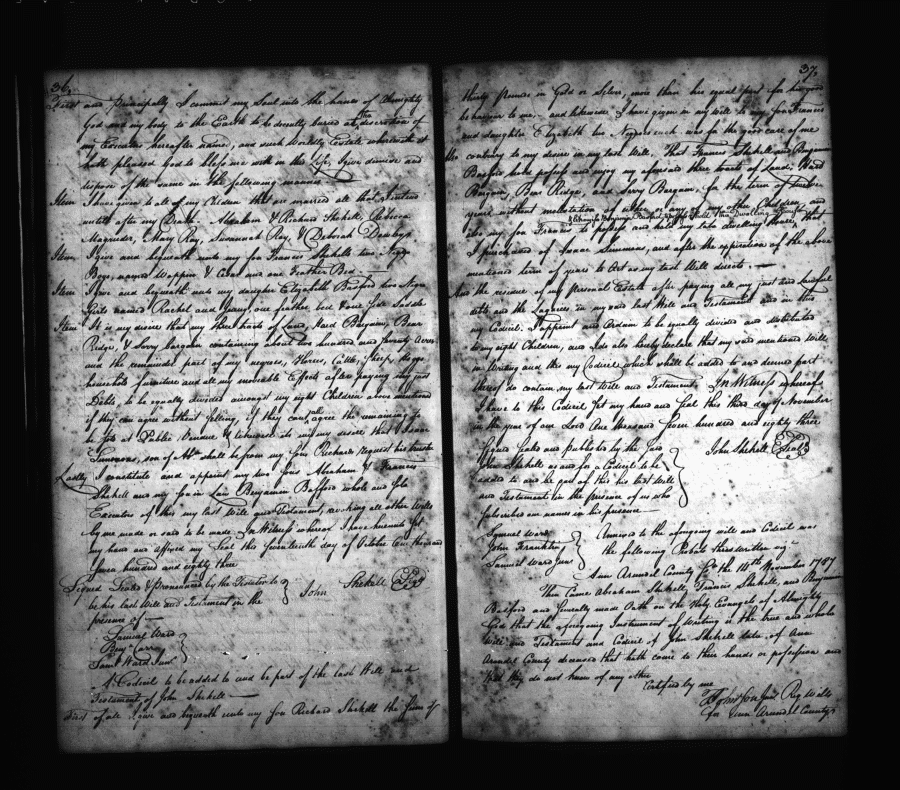 36.
First and principally I commit my Soul into the hands of Almighty
God and my body to the Earth to be decently buried at the discretion of
my Executors hereafter name, and such Worldly Estate wherewith it
hath pleased God to bless me with in this Life, I give demise and
dispose of the same in the following manner
Item I have given to all of my Children that are married all that I intend
untill after my Death. Abraham & Richard Shekell, Rebecca
Magruder, Mary Ray, Susannah Ray, & Deborah
Item I give and bequeath unto my son Francis Shekells two Negro
Boys named Wappin & and one Feather Bed
Item I give and bequeath unto my daughter Elizabeth Basford two Negro
Girls named Rachel and Jenny, one feather bed & one Side Saddle
Item It is my desire that my three tracts of Land, Hard Bargain, Bear
Ridge, & Sorry bargain containing about one hundred and seventy acres
and the remainder part of my negroes, Horses, Cattle, Sheep, Hoggs
household furniture and all my moveable Effects after paying my just
Debts, to be equally divided amongst my eight Children above mentioned
if they can agree without selling, if they cant all agree the remaining to
be Sold at Public Vendue & likewise its my desire that Isaac
Simmons, son of shall be from my son Richard
Lastly I constitute and appoint my two Sons Abraham & Francis
Shekell and my son in Law Benjamin Basford whole and Sole
Executors of this my last Will and Testament, revoking all other Wills
by me made or said to be made. In Witness whereof I have hereunto Set
my hand and affixed my Seal this Seventeenth day of October One thousand
seven hundred and eighty three
Signed Sealed & pronounced by the Testator to
be his last Will and Testament in the
presence of
John Shekell Seal
Samuel Ward
Benj Carr
Saml Ward Junr
A Codicil to be added to and be part of the last Will and
Testament of John Shekell
First of all I give and bequeath unto my Son Richard Shekell the sum of
37.
thirty pounds in Gold or Silver, more than his equal part for his good
behaviour to me, and likewise I have given in my will to my son Francis
and daughter Elizabeth two Negros each was for the good care of me
contrary to my desire in my last Will. That Francis Shekell and Benjamin
Basford have possess and enjoy my aforesaid three tracts of Land, Hard
Bargain, Bear Ridge, and Sorry Bargain, for the term of twelve
years without molestation of any of my other Children, and
also my son Francis to possess and hold my late dwelling house, that
I purchased of Isaac Simmons, and after the expiration of the above
mentioned term of years to Act as my last Will directs.
And the residue of my Personal Estate after paying all my just and lawful
debts and the Legacies in my said last Will and Testament and in this
my Codicil. I appoint and Ordain to be equally divided and distributed
to my eight Children, and I do also hereby declare that my said mentioned Will
in Writing and this my Codicil which shall be added to and deemed part
thereof do contain my last Will and Testament. In Witness whereof
I have to this Codicil Set my hand and Seal this third day of November
in the year of our Lord One thousand seven hundred and eighty three
Signed Sealed and Published by the said
John Shekell as and for a Codicil to be
added to and be part of this his last Will
and Testament in the presence of us who
subscribed our names in his presence
John Shekell Seal
Samuel Ward
John Franklin
Samuel Ward Junr
Annexed to the aforegoing will and Codicil was
the following Probate thereon written viz
Ann Arundel County Sct the 14th November 1787
Then Came Abraham Shekell, Francis Shekell, and Benjamin
Basford and severally made Oath on the Holy Evangels of Almighty
God that the aforegoing Instrument of Writing is the true and whole
Will and Testament and Codicil of John Shekell late of Ann
Arundel County deceased that hath come to their hands or possession and
that they do not know of any other
Certified by me
Junr Reg Wills
for Ann Arundel County